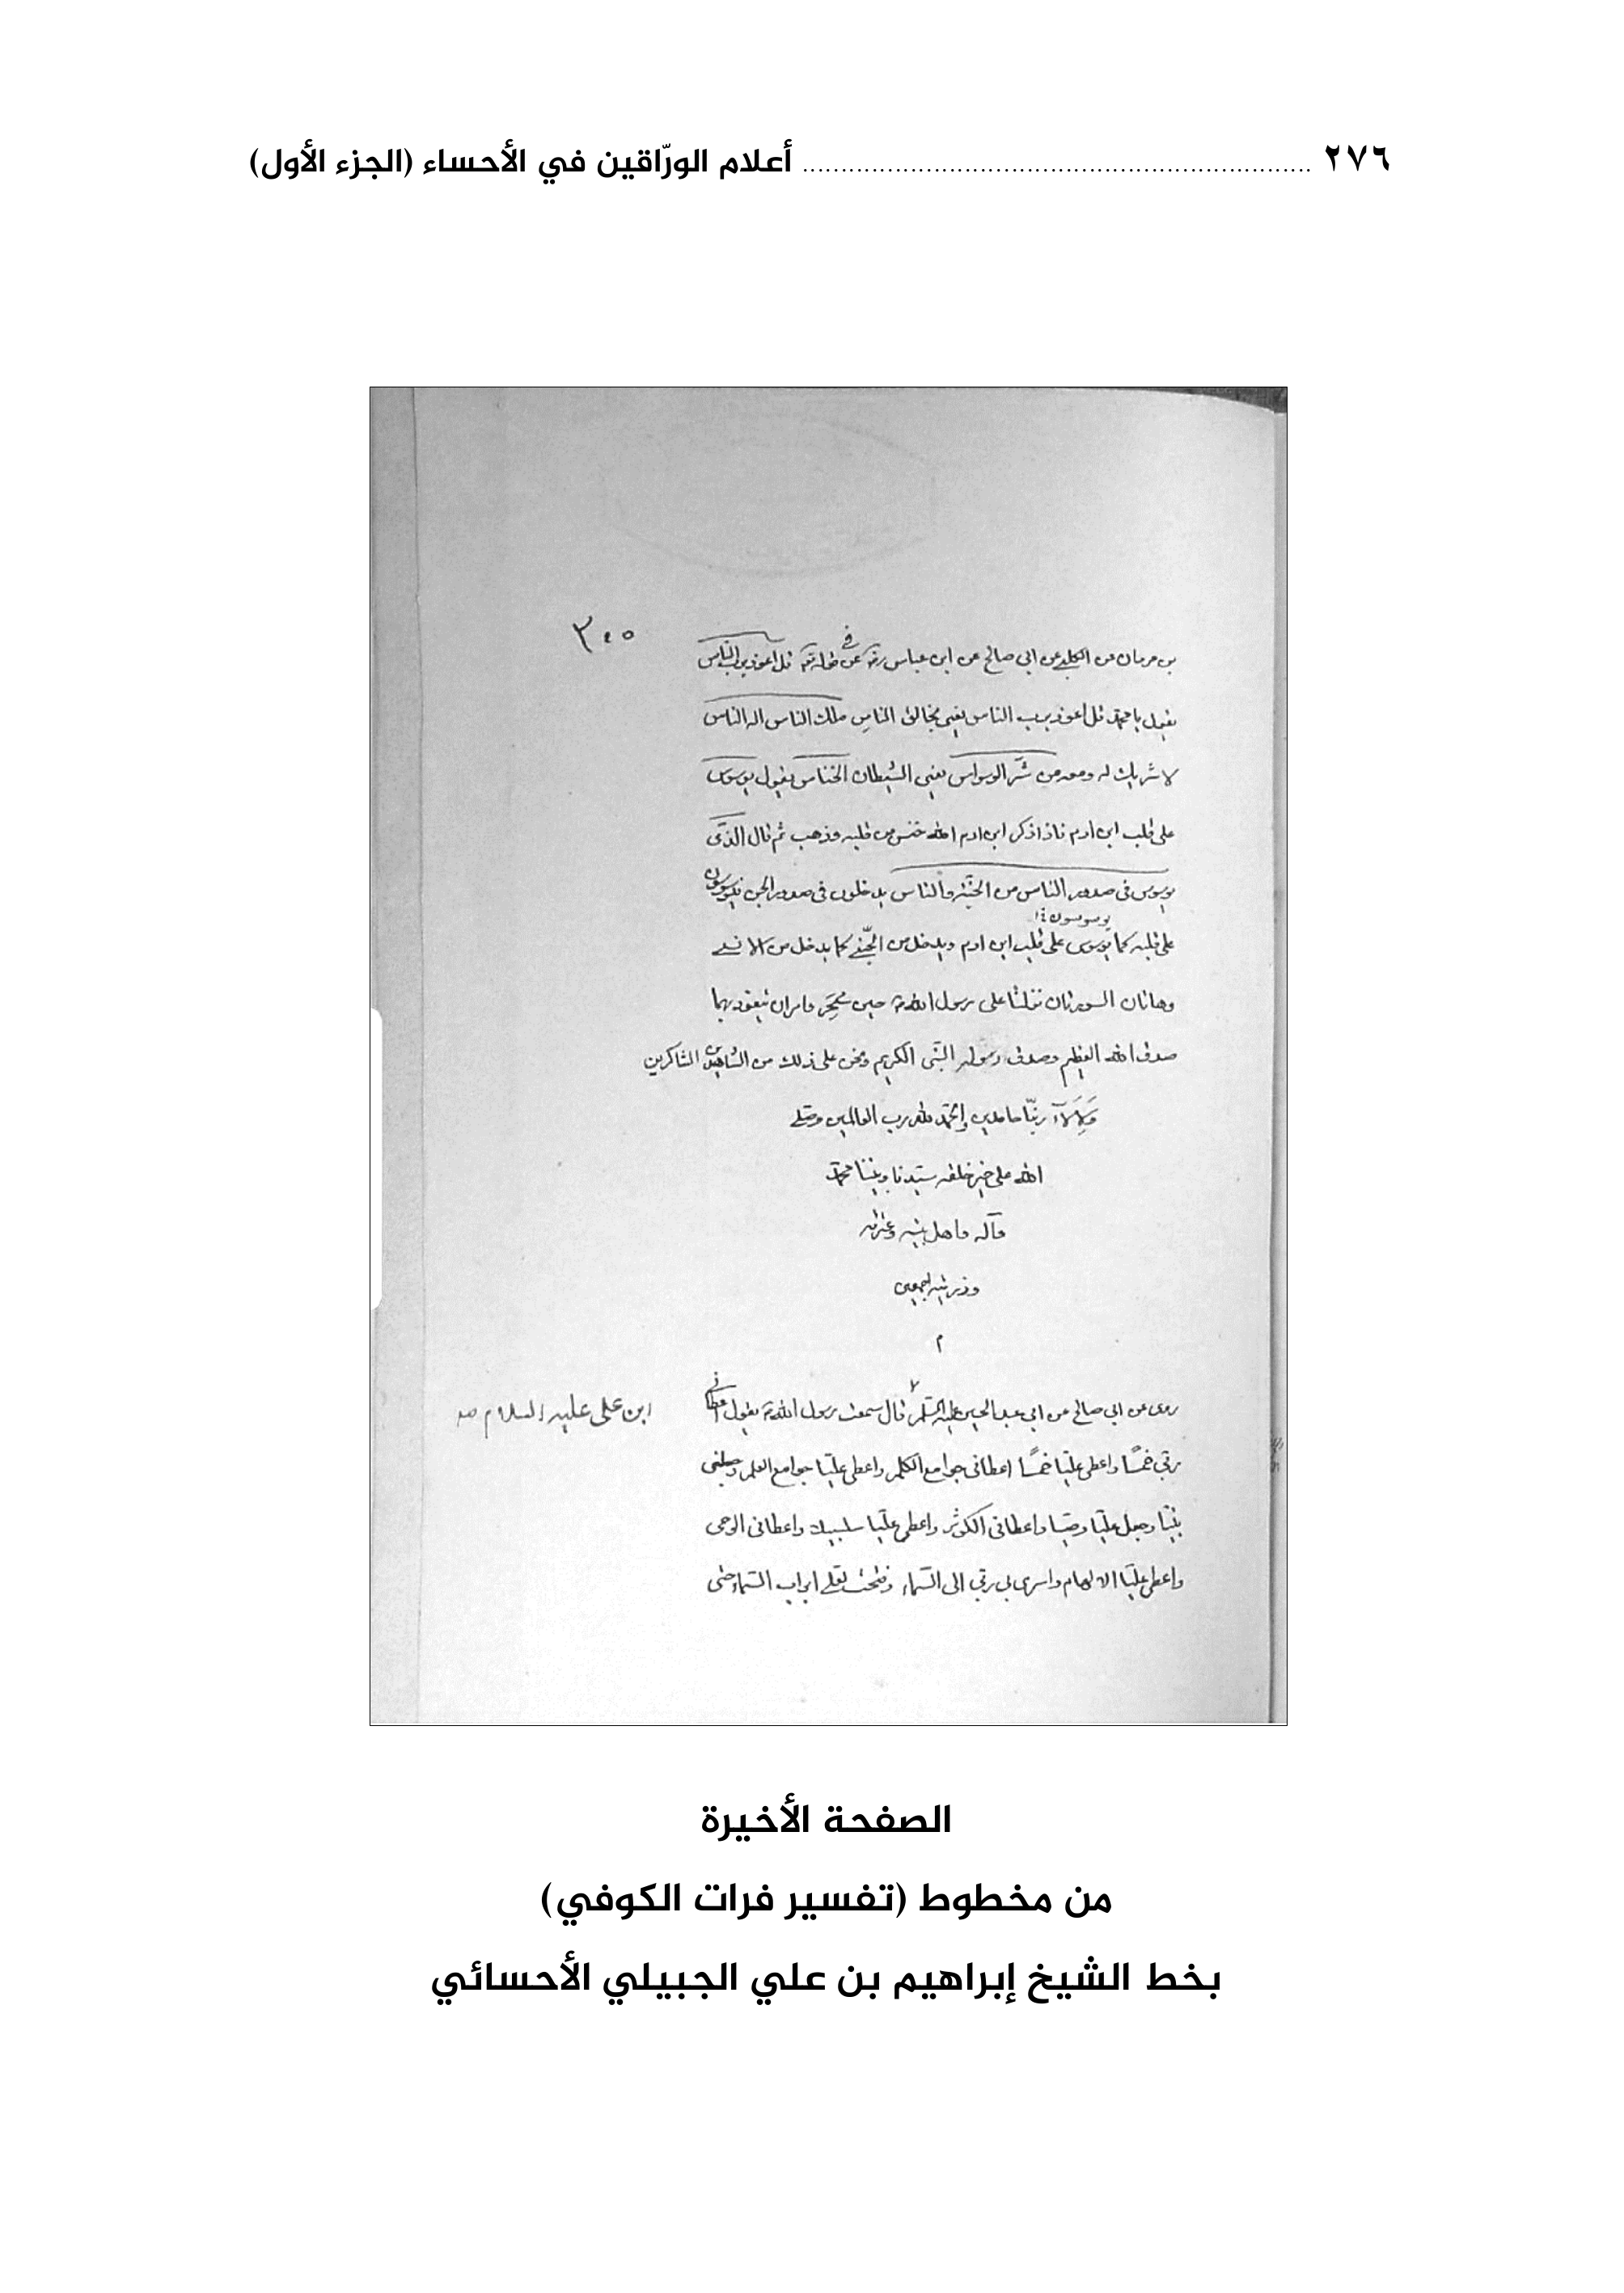 ٢٧٦ ................................................................ أعلام الورّاقين في الأحساء (الجزء الأول)
٣٠٥
عن ابي صالح عن ابن عباس في قل اعوذ برب الناس
يقول يا محمد قل اعوذ برب الناس يعني بخالق الناس ملك الناس اله الناس
لا شريك له ومعه من شر الوسواس يعني الشيطان الخناس يقول يوسوس
على قلب ابن ادم فاذا ذكر ابن ادم الله خنس من قلبه وذهب ثم قال الذي
يوسوس في صدور الناس من الجنة والناس يدخلون في صدور الجن
يوسوسون
على قلبه كما يوسوس على قلب ابن ادم ويدخل من الجنے كما يدخل من الانسے
وهاتان السورتان نزلتا على رسول الله حين سحر وامر ان يتعوذ بهما
صدق الله العظيم وصدق رسوله النبي الكريم ونحن على ذلك من الشاهدين الشاكرين
ولآلآء ربنا حامدين والحمد لله رب العالمين وصلے
الله على خير خلقه سيدنا ونبينا محمد
وآله واهل بيته وعترته
وذريته اجمعين
م
روى عن ابي صالح عن ابي عبد الحسين عليه السلم قال سمعت رسول الله يقول اعطاني
ابن على عليه السلام
ربي خمسًا واعطى عليّا خمسًا اعطاني جوامع الكلم واعطى عليّا جوامع العلم وجعلني
نبيّا وجعل عليّا وصيّا واعطاني الكوثر واعطى عليّا سلسبيل واعطاني الوحى
واعطى عليّا الالهام واسرى بى ربي الى السماء وفتحت لعلے ابواب السماء حتى
الصفحة الأخيرة
من مخطوط (تفسير فرات الكوفي)
بخط الشيخ إبراهيم بن علي الجبيلي الأحسائي